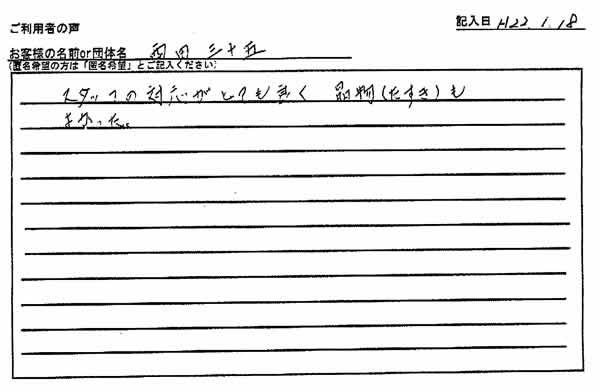 ご利用者の声
記入日 H22.1.18
お客様の名前or団体名 西田 三十五
(匿名希望の方は「匿名希望」とご記入ください)
スタッフの対応がとても良く 品物(たすき)も
よかった。